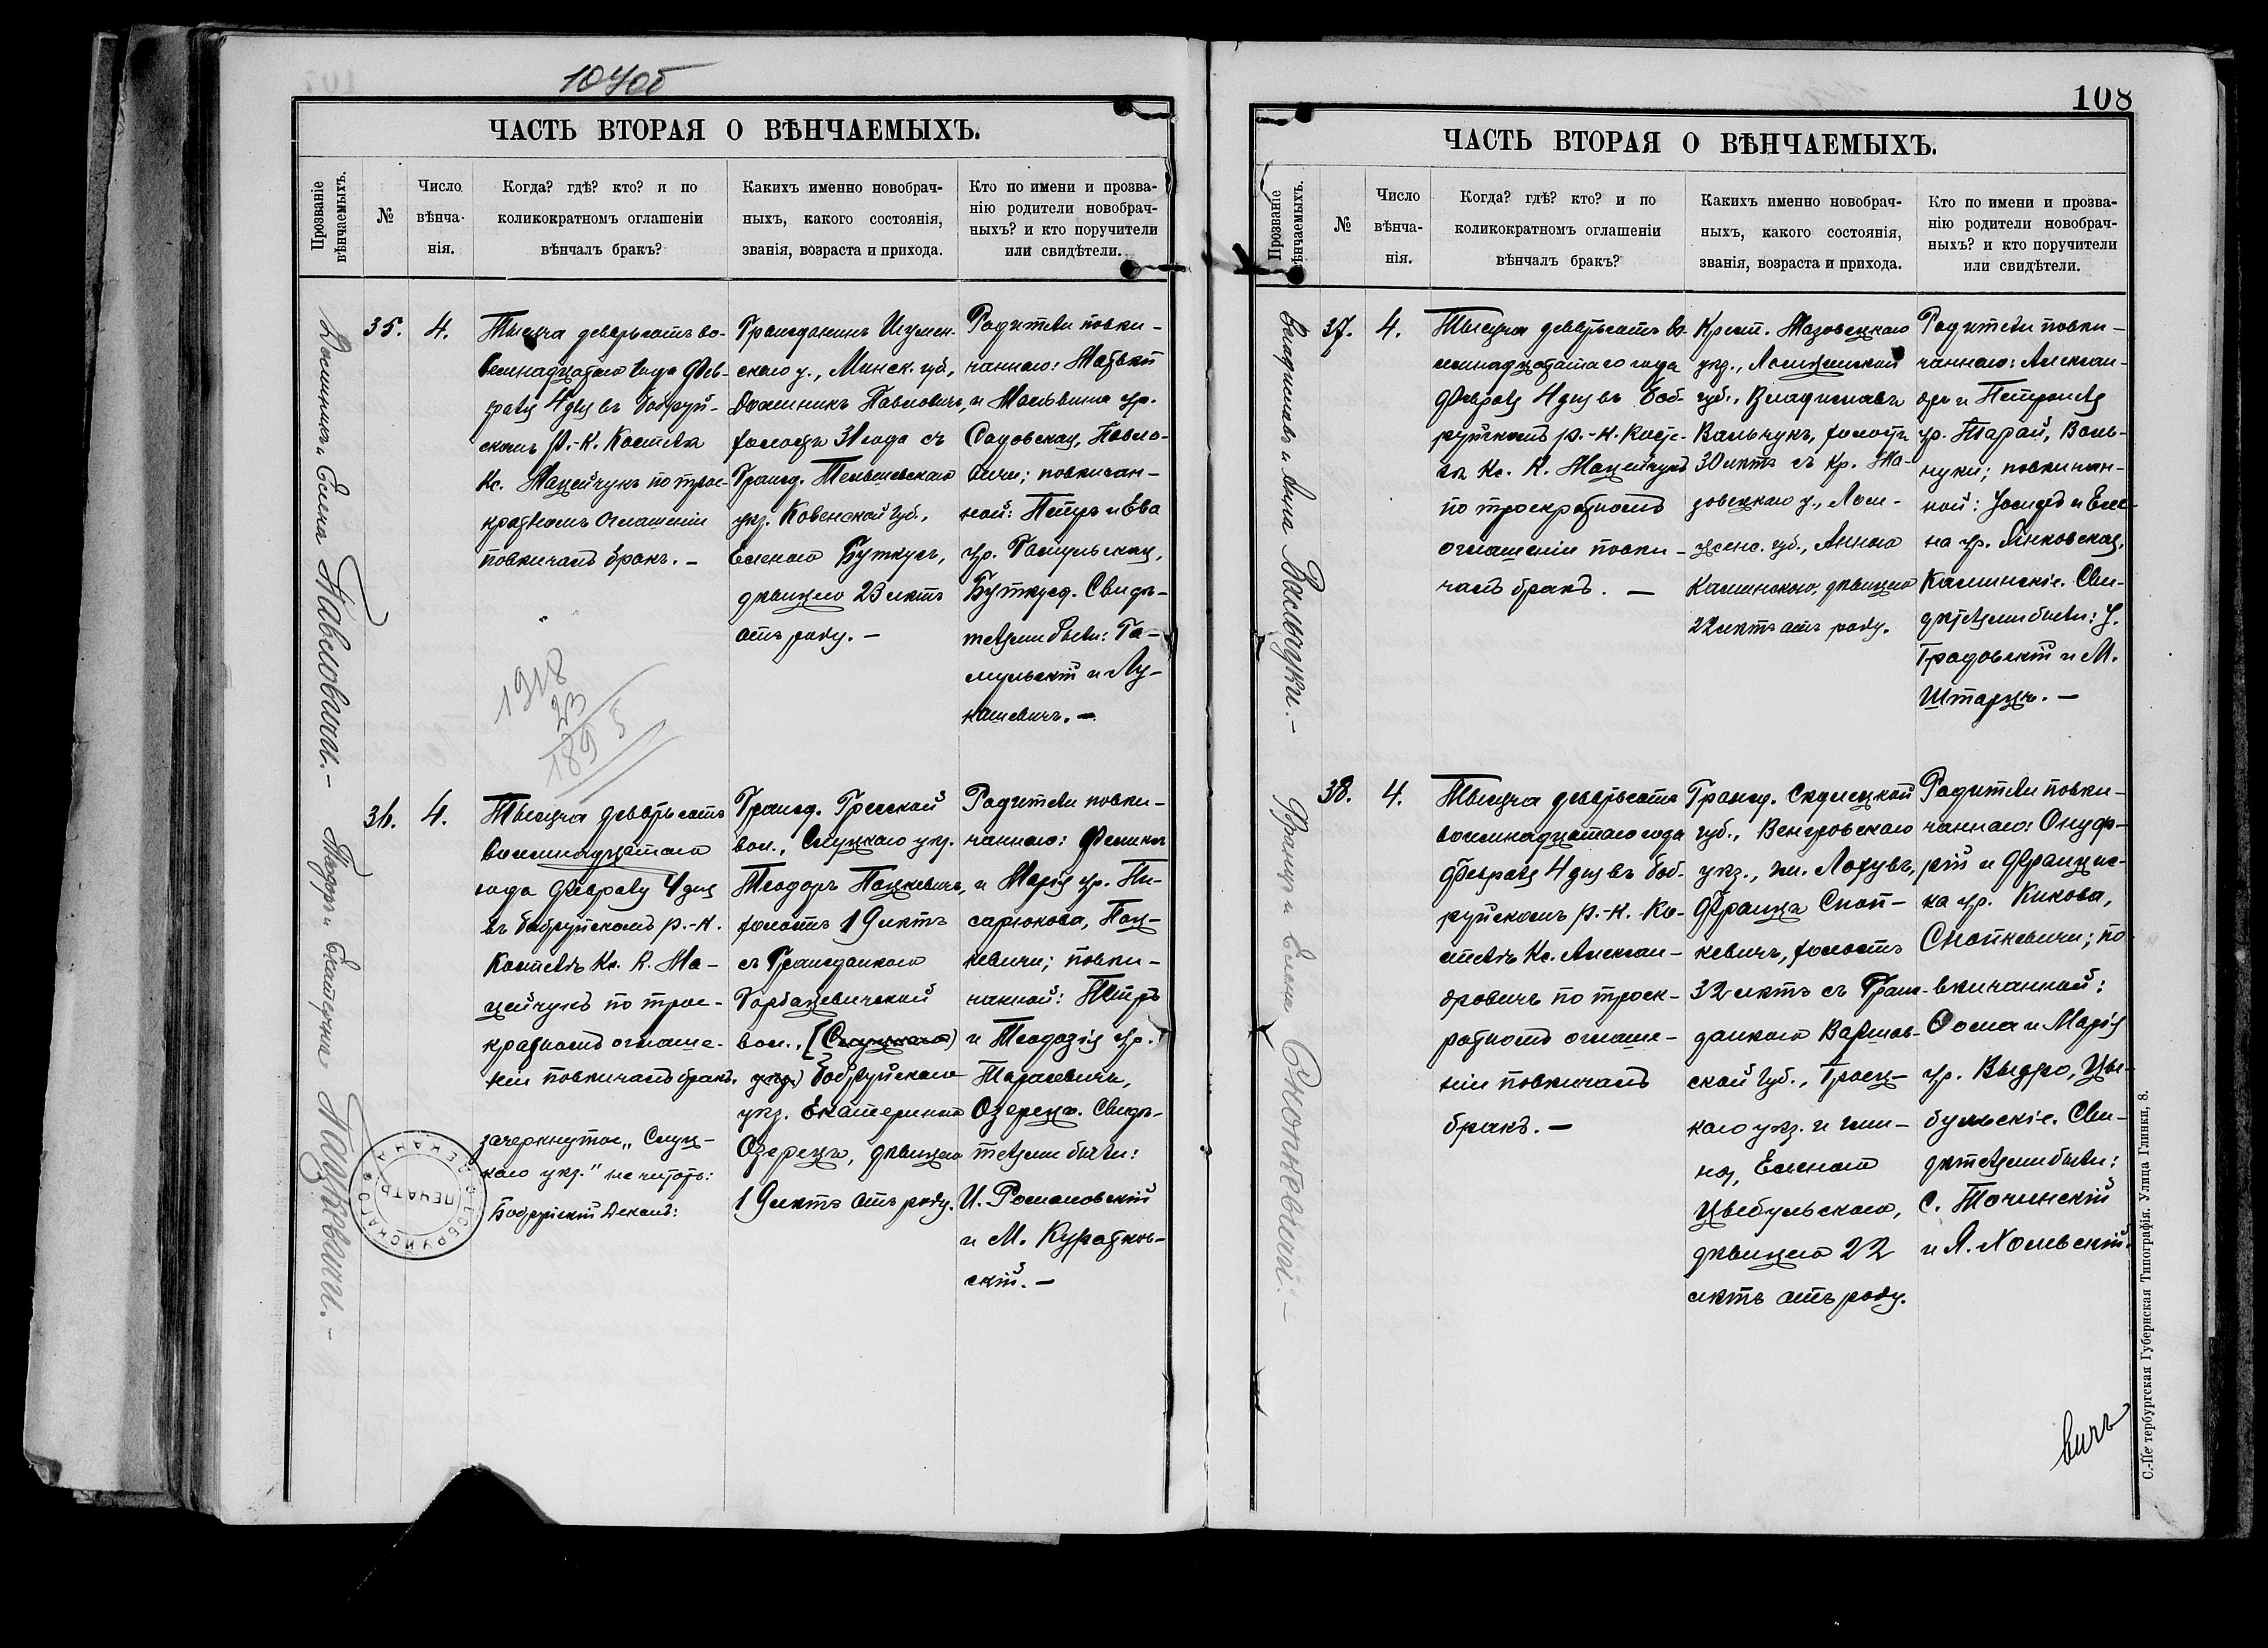 107об
ЧАСТЬ ВТОРАЯ О ВѢНЧАЕМЫХЪ.
Прозваніе
вѣнчаемыхъ.
№
Число
вѣнча-
нія.
Когда? гдѣ? кто? и по
коликократномъ оглашеніи
вѣнчалъ бракъ?
Какихъ именно новобрач-
ныхъ, какого состоянія,
званія, возраста и прихода.
Кто по имени и прозва-
нію родители новобрач-
ныхъ? и кто поручители
или свидѣтели.
Доминикъ и Елена Павловичи.-
35.
4.
Тысяча девятьсотъ во-
семнадцатаго года Фев-
раля 4 дня въ Бобруй-
скомъ Р.-К. Костелѣ
Кс. Мацейчукъ по трое-
кратномъ оглашеніи
повѣнчалъ бракъ. -
Гражданинъ Игумен-
скаго у., Минск. губ.,
Доминикъ Павловичъ,
холостъ 31 года съ
Гражд. Тельшевскаго
уѣз. Ковенской губ.,
Еленою Буткусъ,
дѣвицею 23 лѣтъ
отъ роду. -
Родители повѣн-
чаннаго: Матвѣй
и Мальвина ур.
Садовская, Павло-
вичи; повѣнчан-
ной: Петръ и Ева
ур. Гамульская,
Буткусъ. Свидѣ-
телями были: Га-
мульскій и Лу-
кашевичъ. -
1918
23
1895
Теодоръ и Екатерина Пацкевичи.-
36.
4.
Тысяча девятьсотъ
восемнадцатаго
года Февраля 4 дня
въ Бобруйскомъ р.-к.
Костелѣ Кс. К. Ма-
цейчукъ по трое-
кратномъ оглаше-
ніи повѣнчалъ бракъ.
зачеркнутое „Слуц-
каго уѣз." не читать:
Бобруйскій Деканъ:
ПЕЧАТЬ
БОБРУЙСКАГО ДЕКАНА
Гражд. Гресской
вол., Слуцкаго уѣз.
Теодоръ Пацкевичъ,
холостъ 19 лѣтъ
съ Гражданкою
Горбацевичской
вол., (Слуцкаго
уѣз.) Бобруйскаго
уѣз. Екатериною
Озерецъ, дѣвицею
19 лѣтъ отъ роду.
Родители повѣн-
чаннаго: Феликсъ
и Марія ур. Пи-
сарюкова, Пац-
кевичи; повѣн-
чанной: Петръ
и Теодозія ур.
Тарасевичъ,
Озерецъ. Свидѣ-
телями были:
И. Романовскій
и М. Куратков-
скій. -
108
ЧАСТЬ ВТОРАЯ О ВѢНЧАЕМЫХЪ.
Прозваніе
вѣнчаемыхъ.
№
Число
вѣнча-
нія.
Когда? гдѣ? кто? и по
коликократномъ оглашеніи
вѣнчалъ бракъ?
Какихъ именно новобрач-
ныхъ, какого состоянія,
званія, возраста и прихода.
Кто по имени и прозва-
нію родители новобрач-
ныхъ? и кто поручители
или свидѣтели.
Владиславъ и Анна
37.
4.
Тысяча девятьсотъ во-
семнадцатаго года
Февраля 4 дня въ Боб-
руйскомъ р.-к. Косте-
лѣ Кс. К. Мацейчукъ
по троекратномъ
оглашеніи повѣн-
чалъ бракъ. -
Крест. Мазовецкаго
уѣз., Ломжинской
губ., Владиславъ
Вальчукъ, холостъ
30 лѣтъ съ кр. Ма-
зовецкаго у., Лом-
жинс. губ., Анною
Каминскою, дѣвицею
22 лѣтъ отъ роду.
Родители повѣн-
чаннаго: Алексан-
дръ и Петронеля
ур. Тарай, Валь-
чуки; повѣнчан-
ной: Іосифъ и Еле-
на ур. Янковская,
Каминскіе. Сви-
дѣтелями были: І.
Градовскій и М.
Штарцъ. -
Францъ и Елена Снопкевичи.-
38.
4.
Тысяча девятьсотъ
восемнадцатаго года
Февраля 4 дня въ Боб-
руйскомъ р.-к. Ко-
стелѣ Кс. Алексан-
дровичъ по троек-
ратномъ оглаше-
ніи повѣнчалъ
бракъ. -
Гражд. Сѣдлецкой
губ., Венгровскаго
уѣз., гм. Лохувъ,
Францъ Сноп-
кевичъ, холостъ
32 лѣтъ съ Граж-
данкою Варшав-
ской губ., Гроец-
каго уѣз. и гми-
ны, Еленою
Цыбульскою,
дѣвицею 22
лѣтъ отъ роду.
Родители повѣн-
чаннаго: Онуф-
рій и Францис-
ка ур. Кикова,
Снопкевичи; по-
вѣнчанной:
Фома и Марія
ур. Выдро, Цы-
бульскіе. Сви-
дѣтелями были:
С. Точинскій
и А. Хольвскій.
вичъ
С.-Петербургская Губернская Типографія. Улица Глинки, 8.